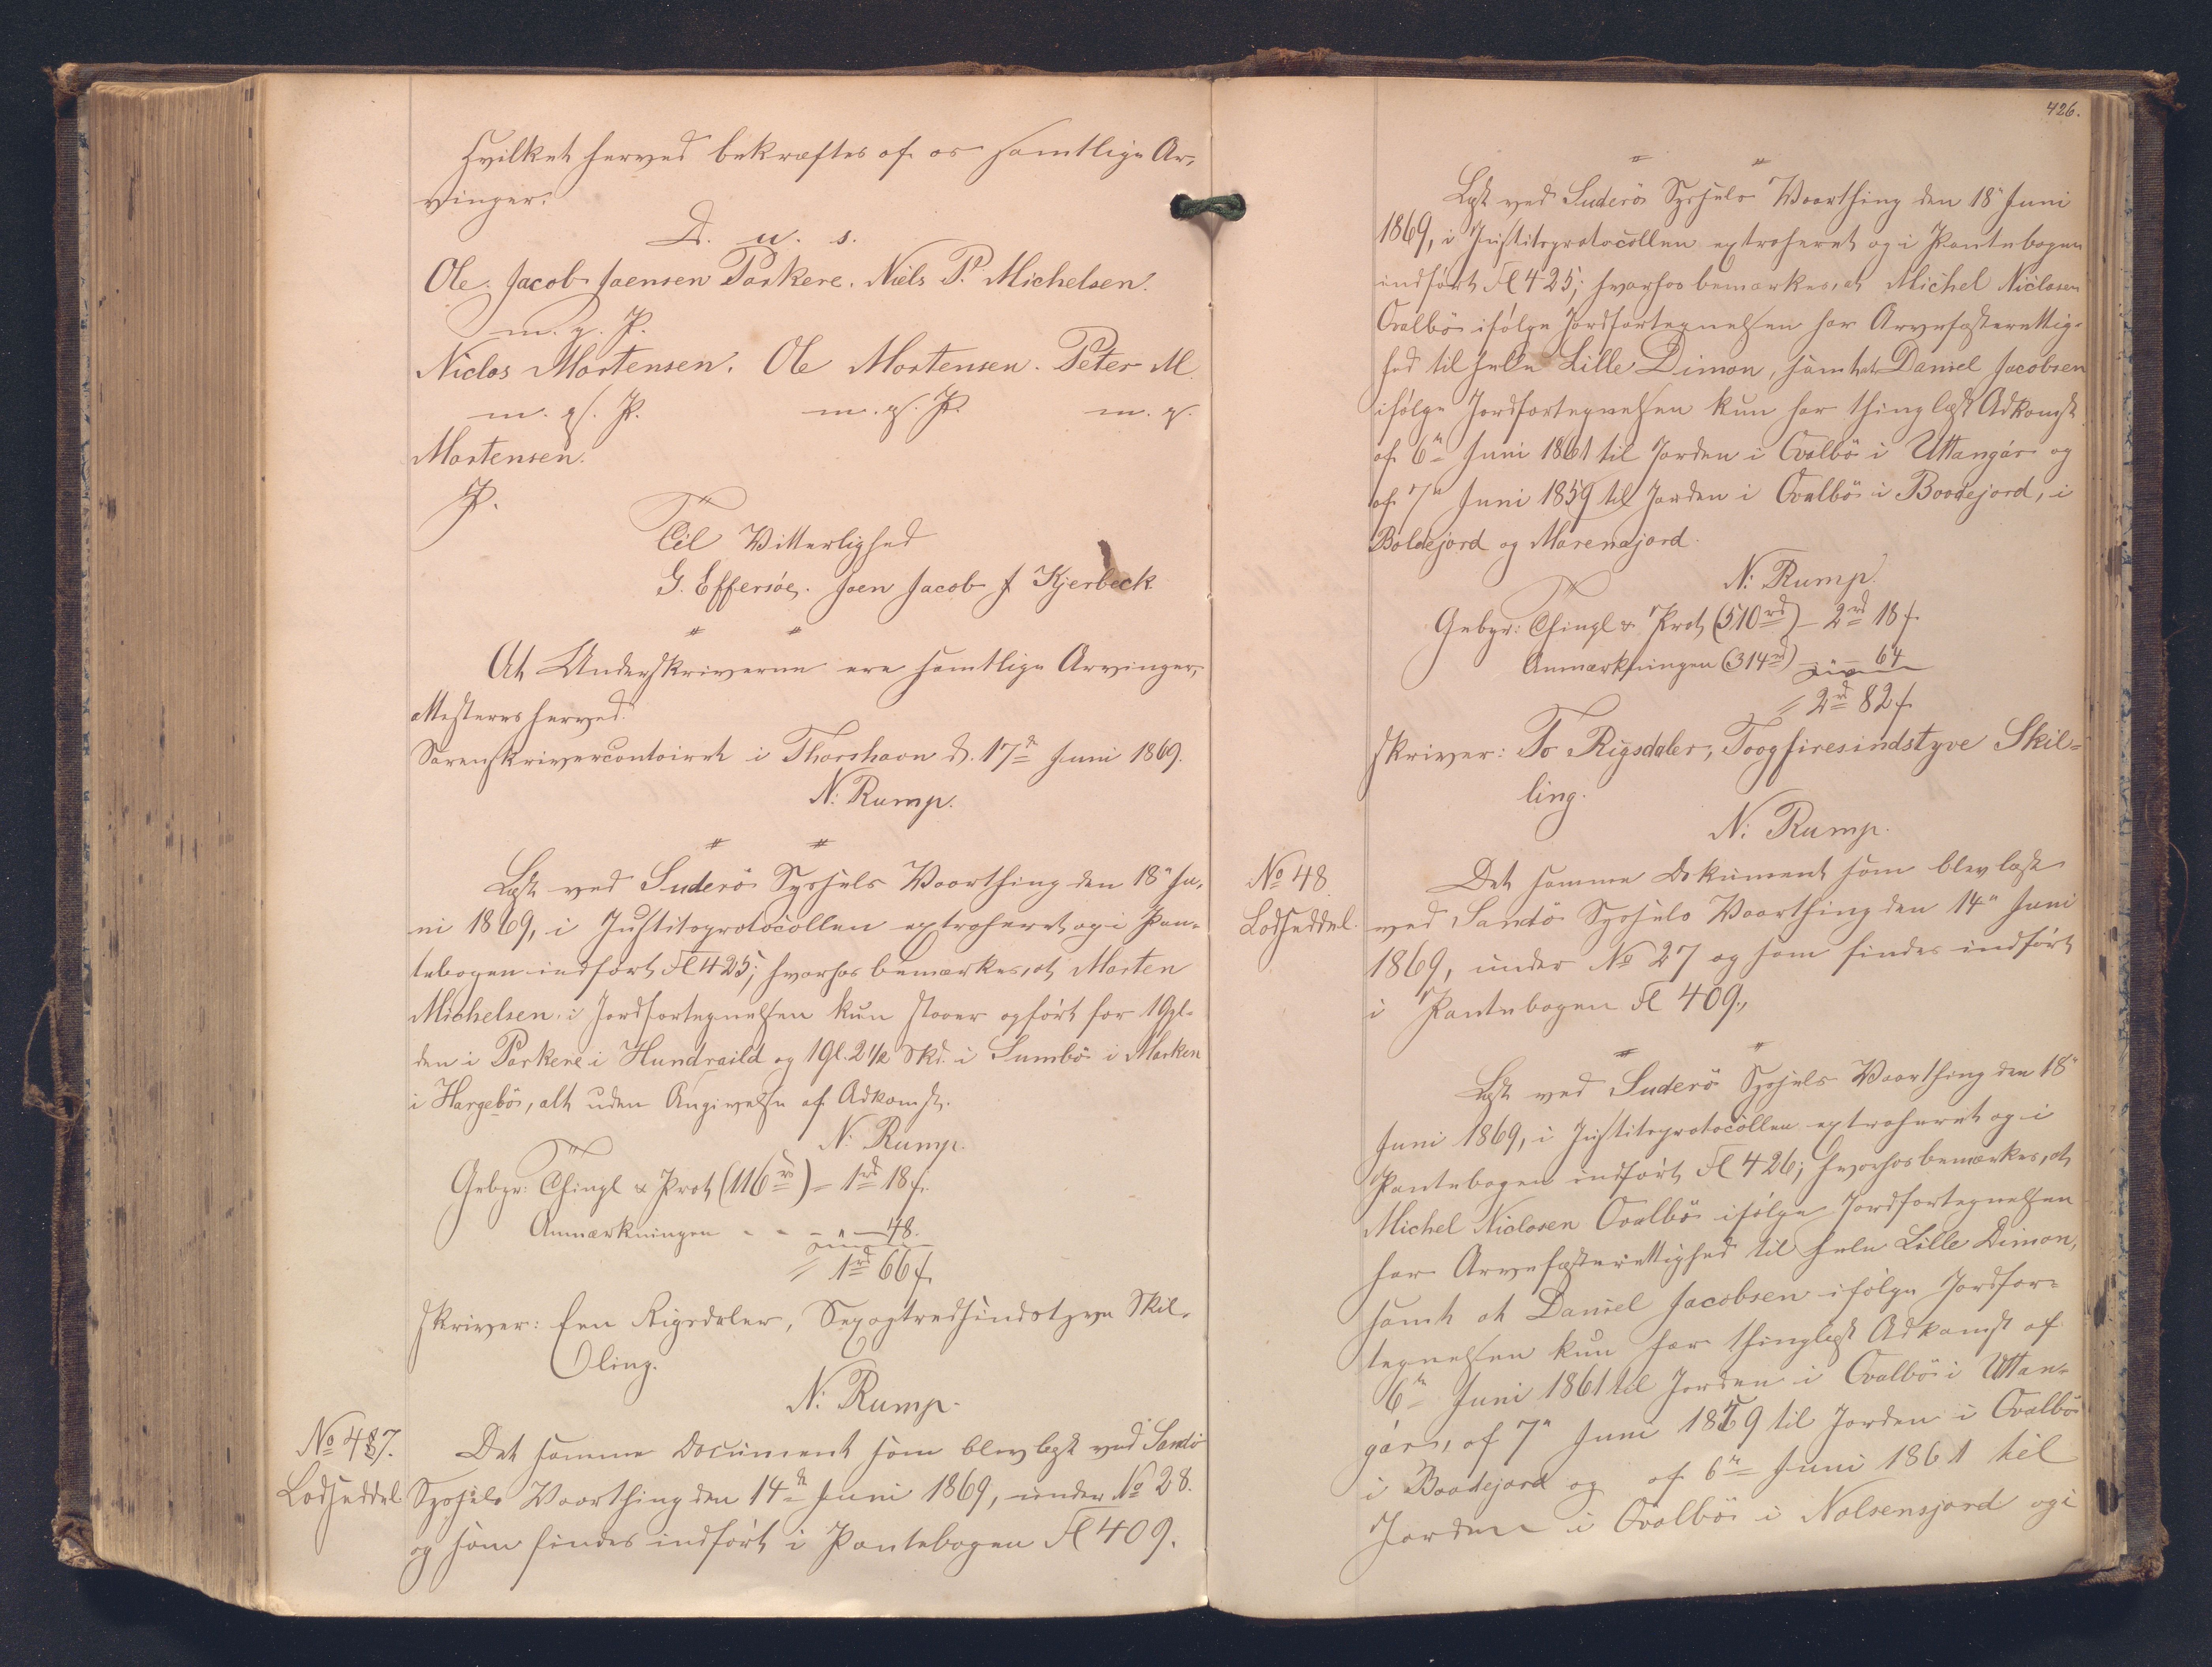 hvilket herved bekræftes af os samtlige Ar-
vinger.
D. u. s.
Ole Jacob Joensen Porkere. Niels P. Michelsen.
m. p. P.
Niclas Mortensen. Ole Mortensen. Peter M.
m. p. P. m. p. P. m. p.
Mortensen.
P.
Til Vitterlighed
G. Effersöe. Joen Jacob J Kjerbeck
At Underskriverne ere samtlige Arvinger,
attesteres herved.
Sorenskrivercontoiret i Thorshavn d. 17de Juni 1869.
N: Rump.
Læst ved Suderö Syssels Vaarthing den 18" Ju-
ni 1869, i Justitsprotocollen extraheret og i Pan-
tebogen indført Fl 425; hvorhos bemærkes, at Morten
Michelsen i Jordfortegnelsen kun staaer opført for 1 Gyl-
den i Porkere i Hundraild og 1 Gl. 2 1/2 Skd. i Sumbö i Marken
i Hargebö, alt uden Angivelse af Adkomst.
N: Rump.
Gebyr: Thingl & Prot (116 rd) - 1 rd 18 ß.
Anmærkningen - - - " - 48.
= 1 rd 66 ß.
skriver: Een Rigsdaler, Sexogtredsindstyve Skil-
ling.
N: Rump.
No 47. Det samme Document som blev læst ved Sandö
Lodseddel Syssels Vaarthing den 14de Juni 1869, under No 28.
og som findes indført i Pantebogen Fl 409.
426.
Læst ved Suderö Syssels Vaarthing den 18" Juni
1869, i Justitsprotocollen extraheret og i Pantebogen
indført Fl 425; hvorhos bemærkes, at Michel Niclasen
Qvalbö ifølge Jordfortegnelsen har Arvefæsterettig-
hed til hele Lille Dimon, samt at Daniel Jacobsen
ifølge Jordfortegnelsen kun har thinglæst Adkomst
af 6te Juni 1861 til Jorden i Qvalbö i Uttangár og
af 7" Juni 1859 til Jorden i Qvalbö i Boodejord, i
Boldejord og Marenajord.
N: Rump.
Gebyr: Thingl & Prot (510 rd) - 2 rd 18 ß.
Anmærkningen (314 rd) - " - 64
= 2 rd 82 ß.
skriver: To Rigsdaler, Toogfiresindstyve Skil-
ling.
N: Rump.
No 48. Det samme Dokument som blev læst
Lodseddel. ved Sandö Syssels Vaarthing den 14" Juni
1869, under No 27 og som findes indført
i Pantebogen Fl 409.
Læst ved Suderö Syssels Vaarthing den 18"
Juni 1869, i Justitsprotocollen extraheret og i
Pantebogen indført Fl 426; hvorhos bemærkes, at
Michel Niclasen Qvalbö ifølge Jordfortegnelsen
har Arvefæsterettighed til hele Lille Dimon,
samt at Daniel Jacobsen ifølge Jordfor-
tegnelsen kun har thinglæst Adkomst af
6te Juni 1861 til Jorden i Qvalbö i Uttan-
gár, af 7" Juni 1859 til Jorden i Qvalbö
i Boodejord og af 6te Juni 1861 til
Jorden i Qvalbö i Nolsensjord og i